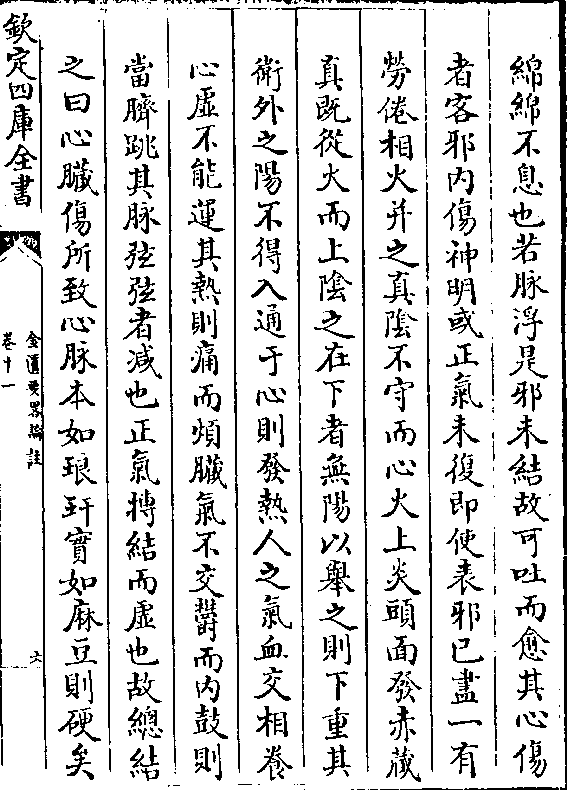 綿綿不息也若脉浮是邪未結故可吐而愈其心傷
者客邪内傷神明或正氣未復即使表邪已盡一有
勞倦相火并之真陰不守而心火上炎頭面發赤藏
真既從火而上陰之在下者無陽以舉之則下重其
衛外之陽不得入通于心則發熱人之氣血交相養
心虚不能運其熱則痛而煩臟氣不交鬱而内鼓則
當臍跳其脉弦弦者減也正氣摶結而虚也故總結
之曰心臟傷所致心脉本如琅玕實如麻豆則硬矣
欽定四庫全書
金匱要畧論註
卷十一
六